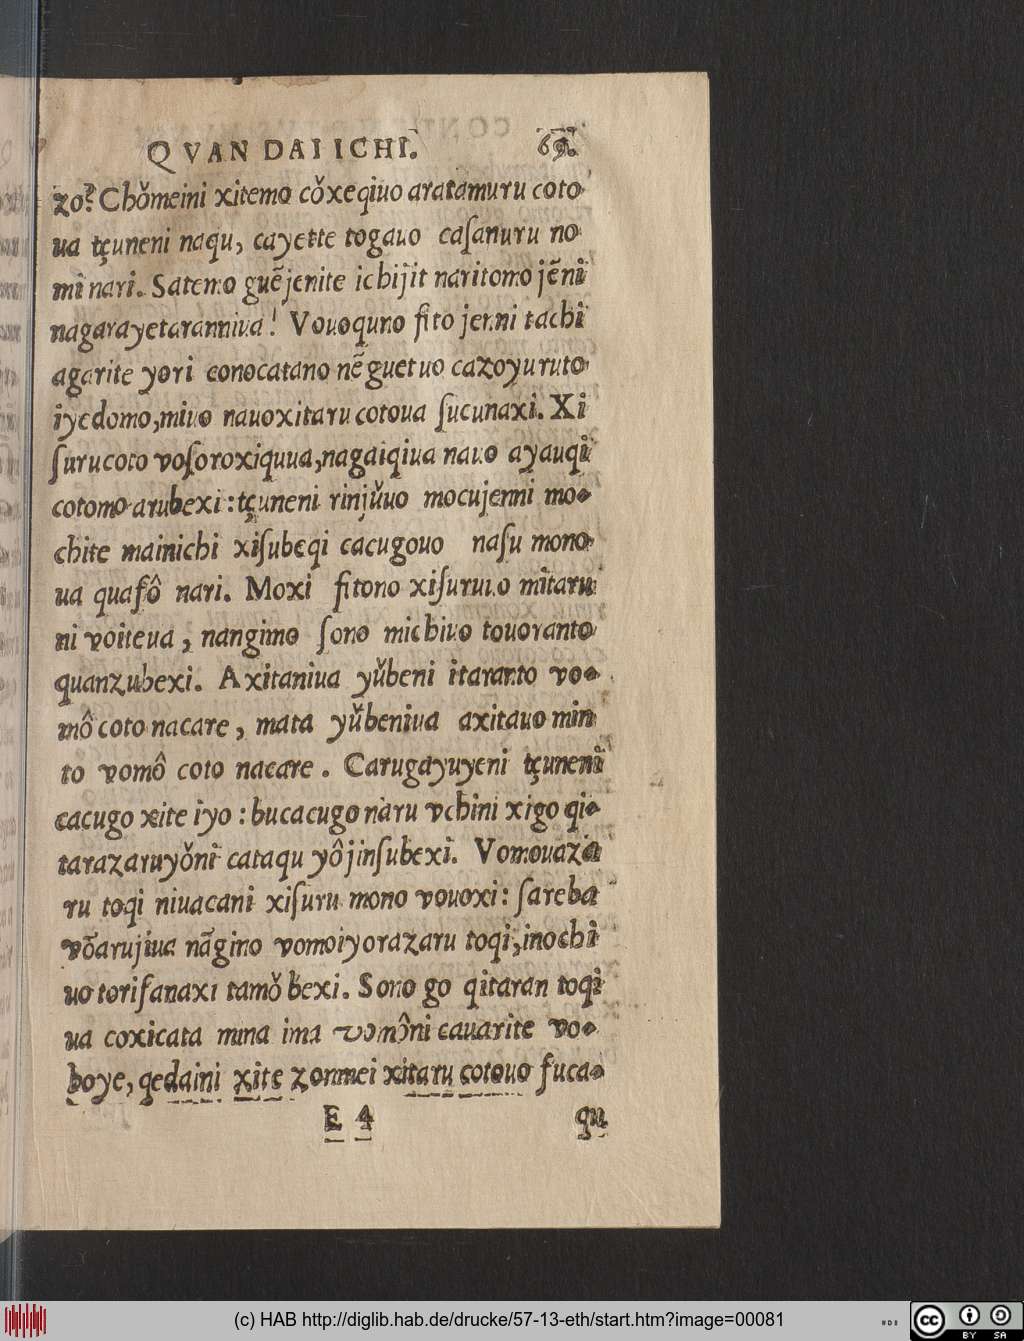 QVAN DAI ICHI.
zo? Chǒmeini xitemo cǒxeqiuo aratamuru coto
ua tçuneni naqu, cayette togauo caſanuru no
mi nari. Satemo guẽjenite ichijit naritomo jẽni
nagarayetaranniua! Vouoquno fito jenni tachi
agarite yori conocatano nẽguetuo cazoyuruto
iyedomo, miuo nauoxitaru cotoua ſucunaxi. Xi
ſurucoto voſoroxiquua, nagaiqiua nauo ayauqi
cotomo arubexi: tçuneni rinjǔuo mocujenni mo-
chite mainichi xiſubeqi cacugouo naſu mono
ua quafô nari. Moxi fitono xiſuruuo mitaru
ni voiteua, nangimo ſono michiuo touoranto
quanzubexi. Axitaniua yǔbeni itaranto vo-
mô coto nacare, mata yǔbeniua axitauo min
to vomô coto nacare. Carugayuyeni tçuneni
cacugo xite iyo: bucacugo naru vchini xigo qi-
tarazaruyǒni cataqu yôjinſubexi. Vomouaza
ru toqi niuacani xiſuru mono vouoxi: ſareba
vǒarujiua nãgino vomoiyorazaru toqi, inochi
uo torifanaxi tamǒ bexi. Sono go qitaran toqi
ua coxicata mina ima vomôni cauarite vo-
boye, qedaini xite zonmei xitaru cotouo fuca-
E 4 qu
(c) HAB http://diglib.hab.de/drucke/57-13-eth/start.htm?image=00081
cc BY SA